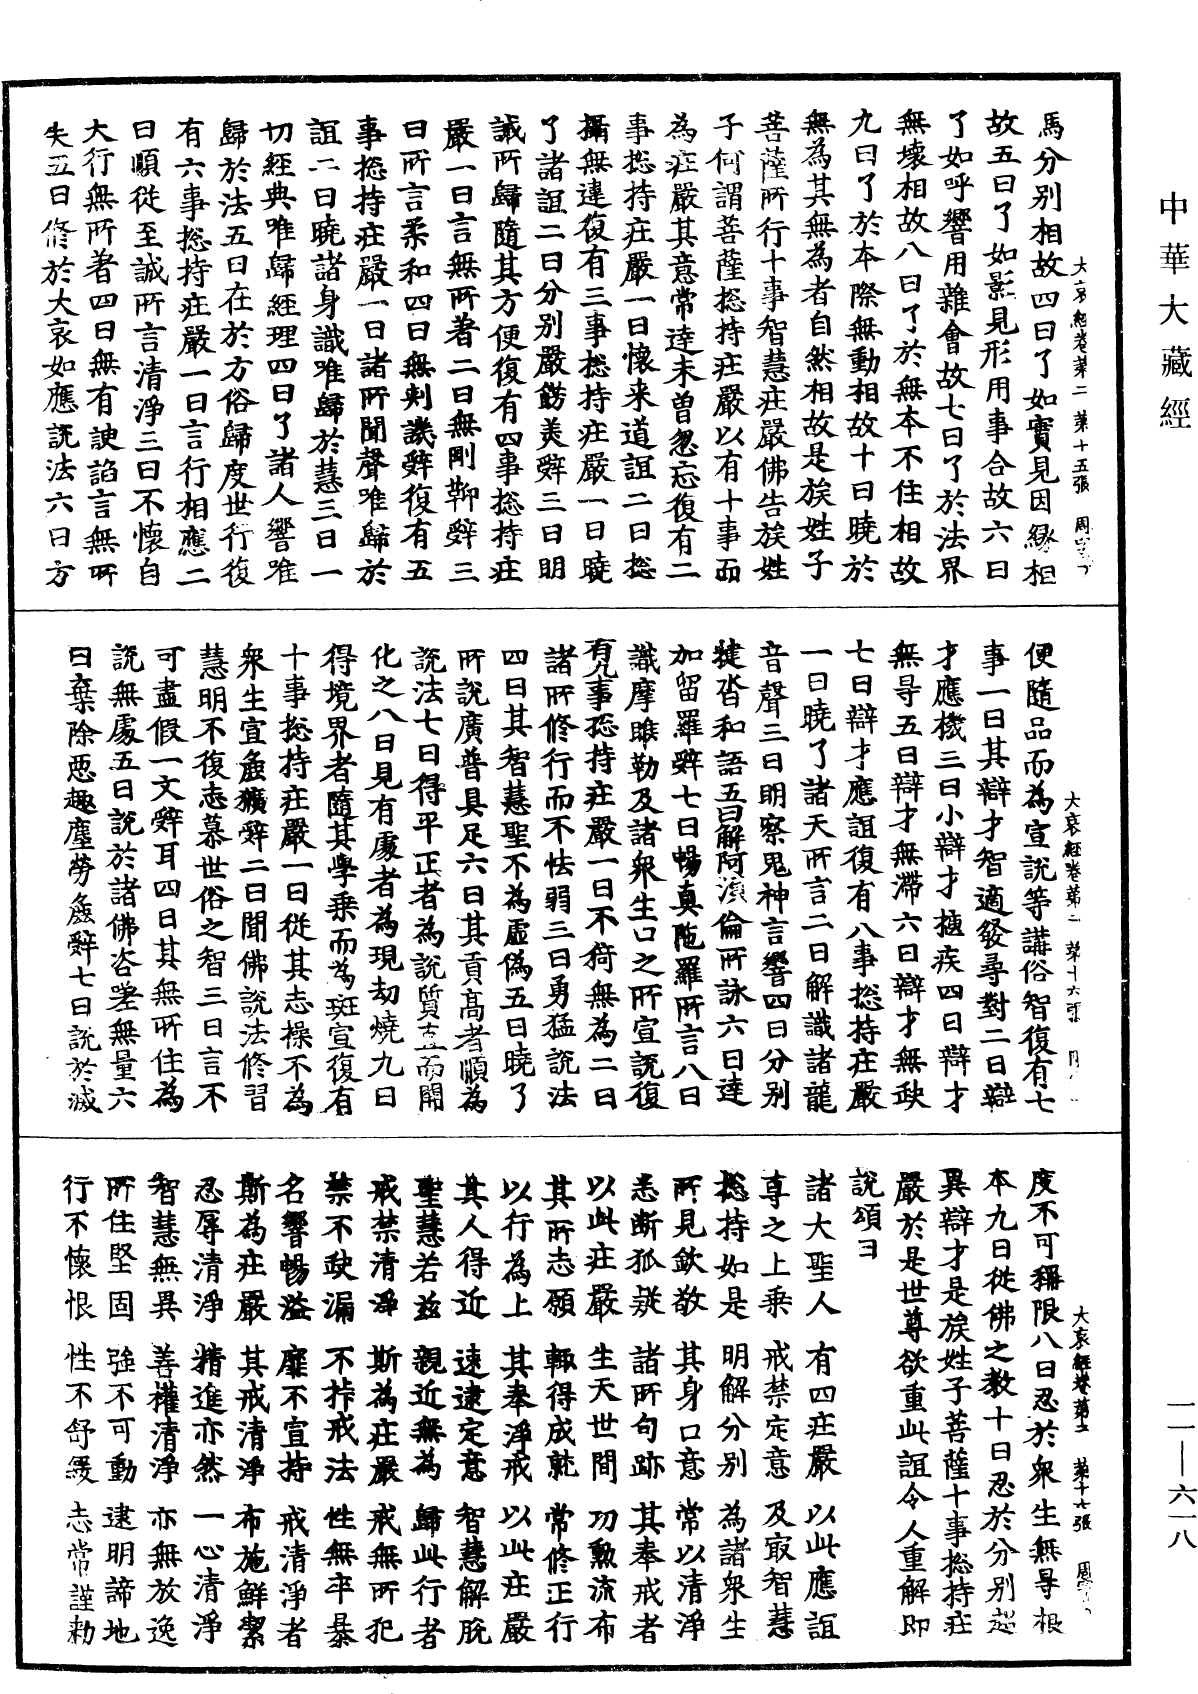 中華大藏經
馬分別相故四曰了如實見因緣相
故五曰了如影見形用事合故六曰
了如呼響用雜會故七曰了於法界
無壞相故八曰了於無本不住相故
九曰了於本際無動相故十曰曉於
無為其無為者自然相故是族姓子
菩薩所行十事智慧莊嚴佛告族姓
子何謂菩薩揔持莊嚴以有十事而
為莊嚴其意常達未曾忽忘復有二
事揔持莊嚴一曰懷来道誼二曰揔
攝無違復有三事揔持莊嚴一曰曉
了諸誼二曰分別嚴餝美辤三曰明
識所歸隨其方便復有四事揔持莊
嚴一曰言無所著二曰無剛鞕辤三
曰所言柔和四曰無刺譏辤復有五
事揔持莊嚴一曰諸所聞聲唯歸於
誼二曰曉諸身識唯歸於慧三曰一
切經典唯歸經理四曰了諸人響唯
歸於法五曰在於方俗歸度世行復
有六事揔持莊嚴一曰言行相應二
曰順從至誠所言清淨三曰不懷自
大行無所著四曰無有諛諂言無所
失五曰脩於大哀如應說法六曰方
大哀經卷第二 第十五張 周字
便隨品而為宣說等講俗智復有七
事一曰其辯才智適發尋對二曰辯
才應機三曰小辯才捷疾四曰辯才
無㝵五曰辯才無滯六曰辯才無缺
七曰辯才應誼復有八事揔持莊嚴
一曰曉了諸天所言二曰解識諸龍
音聲三曰明察鬼神言響四曰分別
揵沓和語五曰解阿湏倫所詠六曰達
加留羅辤七曰暢真陁羅所言八曰
識摩睺勒及諸衆生口之所宣說復
有九事揔持莊嚴一曰不猗無為二曰
諸所修行而不怯弱三曰勇猛說法
四曰其智慧聖不為虛偽五曰曉了
所說廣普具足六曰其貢高者順為
說法七曰得平正者為說質直而開
化之八曰見有處者為現劫燒九曰
得境界者隨其學乗而為斑宣復有
十事揔持莊嚴一曰從其志操不為
衆生宣麁獷辤二曰聞佛說法修習
慧明不復志慕世俗之智三曰言不
可盡假一文辤耳四曰其無所住為
說無處五曰說於諸佛咨嗟無量六
曰棄除惡趣塵勞麁辤七曰說於滅
大哀經卷第二 第十六張
度不可稱限八曰忍於衆生無㝵根
本九曰從佛之教十曰忍於分別超
異辯才是族姓子菩薩十事揔持莊
嚴於是世尊欲重此誼令人重解即
說頌曰
諸大聖人 有四莊嚴 以此應誼
尊之上乗 戒禁定意 及㝡智慧
揔持如是 明解分別 為諸衆生
所見欽敬 其身口意 常以清淨
悉断狐疑 諸所句跡 其奉戒者
以此莊嚴 生天世間 功勲流布
其所志願 輙得成就 常修正行
以行為上 其奉淨戒 以此莊嚴
其人得近 速逮定意 智慧解脫
聖慧若兹 親近無為 歸此行者
戒禁清淨 斯為莊嚴 戒無所犯
禁不缺漏 不捨戒法 性無卒暴
名響暢溢 靡不宣持 戒清淨者
斯為莊嚴 其戒清淨 布施鮮絜
忍辱清淨 精進亦然 一心清淨
智慧無異 善權清淨 亦無放逸
所住堅固 強不可動 逮明諦地
行不懷恨 性不舒緩 志常謹勑
大哀經卷第二 第十六張 周字
一一—六一八